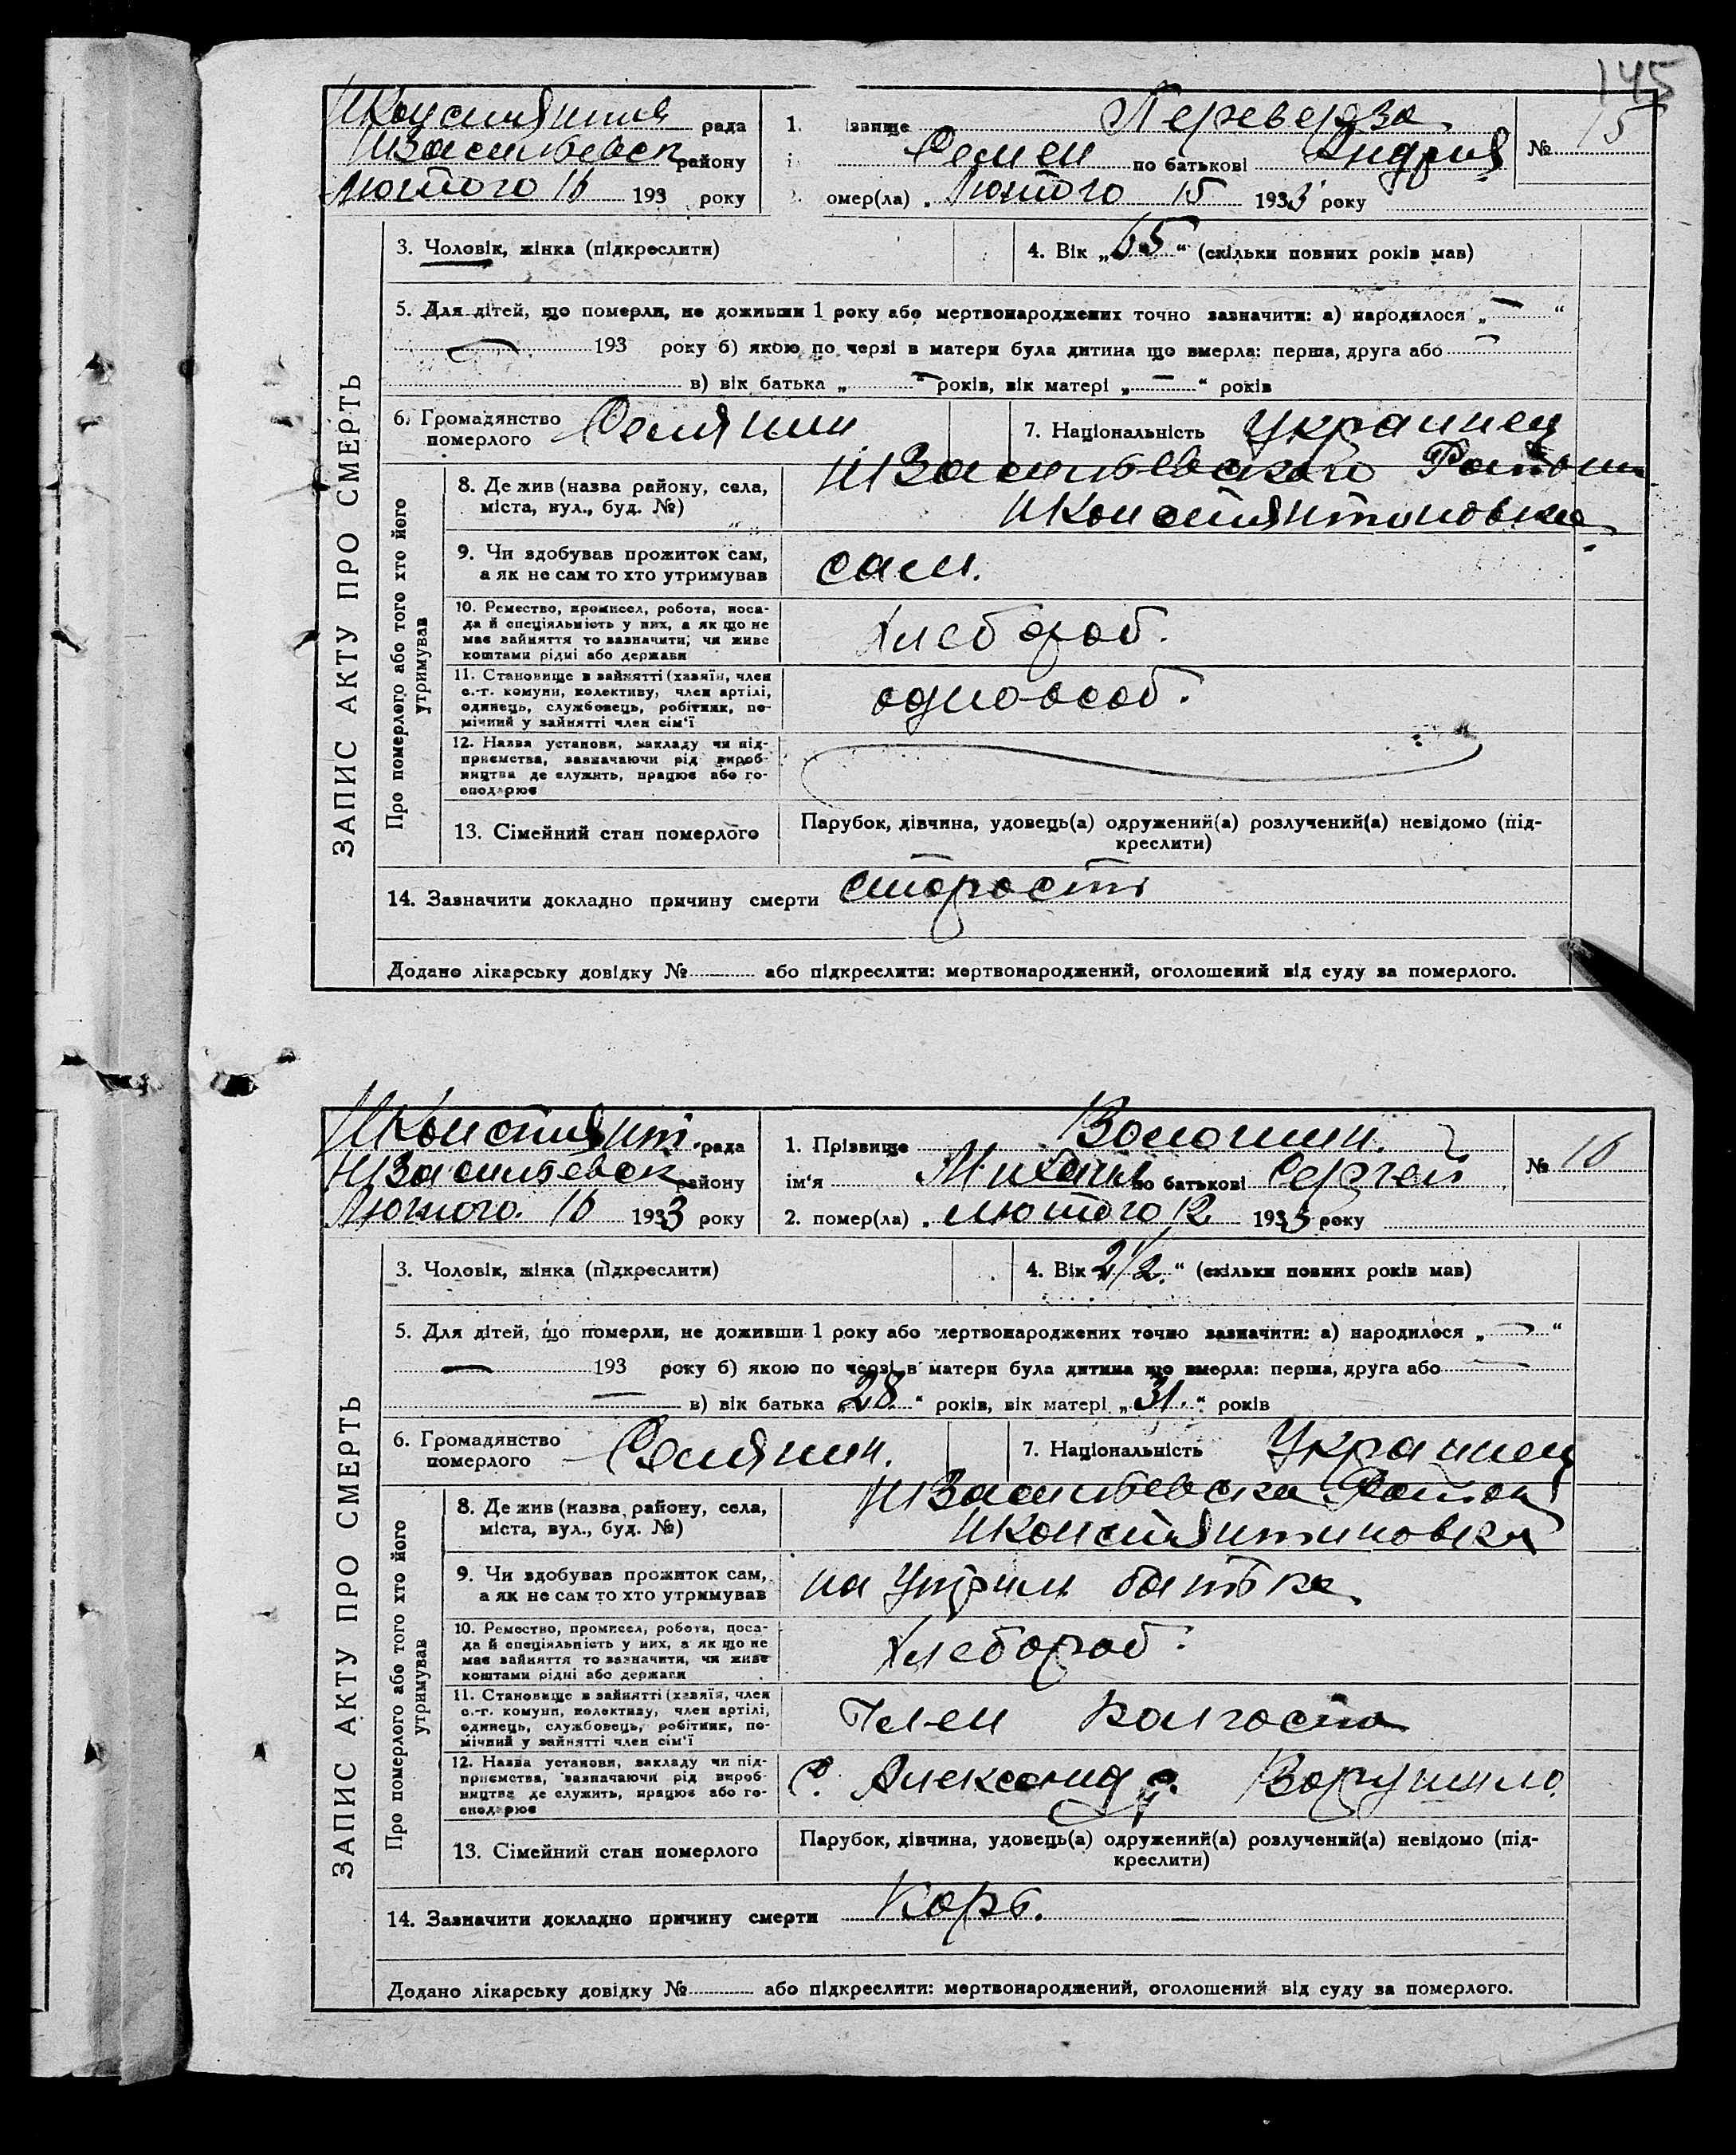 145
рада
Васильевск району
Лютого 16 193 року
1. ізвище Перевердза
Семен по батькові Андрия
№ 15
омер(ла) Лютого 15 1933 року
ЗАПИС АКТУ ПРО СМЕРТЬ
3. Чоловік, жінка (підкреслити)
4. Вік „65“ (скільки повних років мав)
5. Для дітей, що померли, не доживши 1 року або мертвонароджених точно зазначити: а) народилося „—“
— 193 року б) якою по черзі в матери була дитина що вмерла: перша, друга або —
в) вік батька „—“ років, вік матері „—“ років
6. Громадянство
померлого Селянин
7. Національність Украинец
Про померлого або того хто його
утримував
8. Де жив (назва району, села,
міста, вул., буд. №)
НВасильевского Района
НКонстянтиновка
9. Чи здобував прожиток сам,
а як не сам то хто утримував
сам.
10. Ремество, промисел, робота, поса-
да й спеціяльність у них, а як що не
має зайняття то зазначити, чи живе
коштами рідні або держави
Хлебороб.
11. Становище в зайнятті (хазяїн, член
с.-г. комуни, колективу, член артілі,
одинець, службовець, робітник, по-
мічний у зайнятті член сім'ї
одноособ.
12. Назва установи, закладу чи під-
приємства, зазначаючи рід вироб-
ництва де служить, працює або го-
сподарює
13. Сімейний стан померлого
Парубок, дівчина, удовець(а) одружений(а) розлучений(а) невідомо (під-
креслити)
14. Зазначити докладно причину смерти старости
Додано лікарську довідку № або підкреслити: мертвонароджений, оголошений від суду за померлого.
НКонстянт. рада
НВасильевск району
Лютого 16 1933 року
1. Прізвище Волошин.
ім'я Михаил по батькові Сергей
№ 16
2. помер(ла) лютого 12 1933 року
ЗАПИС АКТУ ПРО СМЕРТЬ
3. Чоловік, жінка (підкреслити)
4. Вік 2 1/2 “ (скільки повних років мав)
5. Для дітей, що померли, не доживши 1 року або мертвонароджених точно зазначити: а) народилося „—“
— 193 року б) якою по черзі в матери була дитина що вмерла: перша, друга або —
— в) вік батька „28.“ років, вік матері „31.“ років
6. Громадянство
померлого Селянин.
7. Національність Украинец
Про померлого або того хто його
утримував
8. Де жив (назва району, села,
міста, вул., буд. №)
НВасильевска Район
НКонстянтиновка
9. Чи здобував прожиток сам,
а як не сам то хто утримував
на утрим батька
10. Ремество, промисел, робота, поса-
да й спеціяльність у них, а як що не
має зайняття то зазначити, чи живе
коштами рідні або держави
Хлебороб.
11. Становище в зайнятті (хазяїн, член
с.-г. комуни, колективу, член артілі,
одинець, службовець, робітник, по-
мічний у зайнятті член сім'ї
Член Колгоспа
12. Назва установи, закладу чи під-
приємства, зазначаючи рід вироб-
ництва де служить, працює або го-
сподарює
С. Александр. Ворушило.
13. Сімейний стан померлого
Парубок, дівчина, удовець(а) одружений(а) розлучений(а) невідомо (під-
креслити)
14. Зазначити докладно причину смерти Корь.
Додано лікарську довідку № або підкреслити: мертвонароджений, оголошений від суду за померлого.